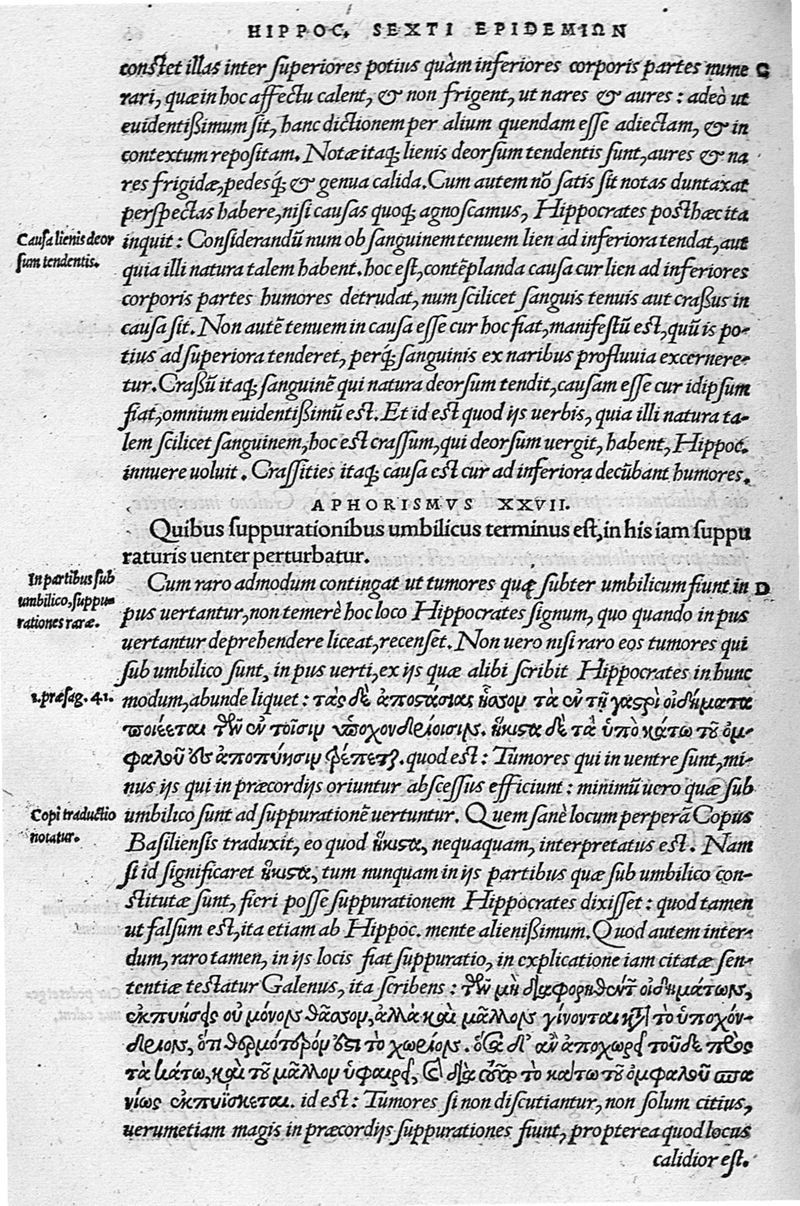 HIPPOC. SEXTI EPIDEMIΩN
constet illas inter superiores potius quàm inferiores corporis partes nume C
rari, quæ in hoc affectu calent, & non frigent, ut nares & aures : adeò ut
euidentißimum sit, hanc dictionem per alium quendam esse adiectam, & in
contextum repositam. Notæ itaq; lienis deorsum tendentis sunt, aures & na
res frigidæ, pedesq; & genua calida. Cum autem nõ satis sit notas duntaxat
perspectas habere, nisi causas quoq; agnoscamus, Hippocrates posthæc ita
Causa lienis deor
sum tendentis.
inquit : Considerandũ num ob sanguinem tenuem lien ad inferiora tendat, aut
quia illi natura talem habent. hoc est, contẽplanda causa cur lien ad inferiores
corporis partes humores detrudat, num scilicet sanguis tenuis aut craßus in
causa sit. Non autẽ tenuem in causa esse cur hoc fiat, manifestũ est, quũ is po-
tius ad superiora tenderet, perq; sanguinis ex naribus profluuia excernere-
tur. Craßũ itaq; sanguinẽ qui natura deorsum tendit, causam esse cur id ipsum
fiat, omnium euidentißimũ est. Et id est quod ijs uerbis, quia illi natura ta-
lem scilicet sanguinem, hoc est crassum, qui deorsum uergit, habent, Hippoc.
innuere uoluit. Crassities itaq; causa est cur ad inferiora decũbant humores.
APHORISMVS XXVII.
Quibus suppurationibus umbilicus terminus est, in his iam suppu
raturis uenter perturbatur.
In partibus sub
umbilico, suppu-
rationes raræ.
Cum raro admodum contingat ut tumores quę subter umbilicum fiunt in D
pus uertantur, non temerè hoc loco Hippocrates signum, quo quando in pus
uertantur deprehendere liceat, recenset. Non uero nisi raro eos tumores qui
sub umbilico sunt, in pus uerti, ex ijs quæ alibi scribit Hippocrates in hunc
1. præsag. 41.
modum, abunde liquet : τὰς δὲ ἀποστάσιας ἧσσον τὰ ἐν τῇ γαστρὶ οἰδήματα
ποιέεται τῶν ἐν τοῖσιν ὑποχονδρίοισιν. ἥκιστα δὲ τὰ ὑποκάτω τοῦ ὀμ-
φαλοῦ ἐς ἀποπύησιν τρέπεται. quod est : Tumores qui in uentre sunt, mi-
nus ijs qui in præcordijs oriuntur abscessus efficiunt : minimũ uero quæ sub
Copi traductio
notatur.
umbilico sunt ad suppurationẽ uertuntur. Quem sanè locum perperã Copus
Basiliensis traduxit, eo quod ἥκιστα, nequaquam, interpretatus est. Nam
si id significaret ἥκιστα, tum nunquam in ijs partibus quæ sub umbilico con-
stitutæ sunt, fieri posse suppurationem Hippocrates dixisset : quod tamen
ut falsum est, ita etiam ab Hippoc. mente alienißimum. Quod autem inter-
dum, raro tamen, in ijs locis fiat suppuratio, in explicatione iam citatæ sen-
tentiæ testatur Galenus, ita scribens : τῶν μὴ διαφορηθέντων οἰδημάτων,
ἐκπυήσεις οὐ μόνον θᾶσσον, ἀλλὰ καὶ μᾶλλον γίνονται κατὰ τὸ ὑποχόν-
δριον, ὅτι θερμότερόν ἐστι τὸ χωρίον. ὅσα δ' ἂν ἀποχωρῇ τοῦδε πρὸς
τὰ κάτω, καὶ τοῦ μᾶλλον τὸ κάτω τοῦ ὀμφαλοῦ σπα
νίως ἐκπυΐσκεται. id est : Tumores si non discutiantur, non solum citius,
uerumetiam magis in præcordijs suppurationes fiunt, propterea quod locus
calidior est.